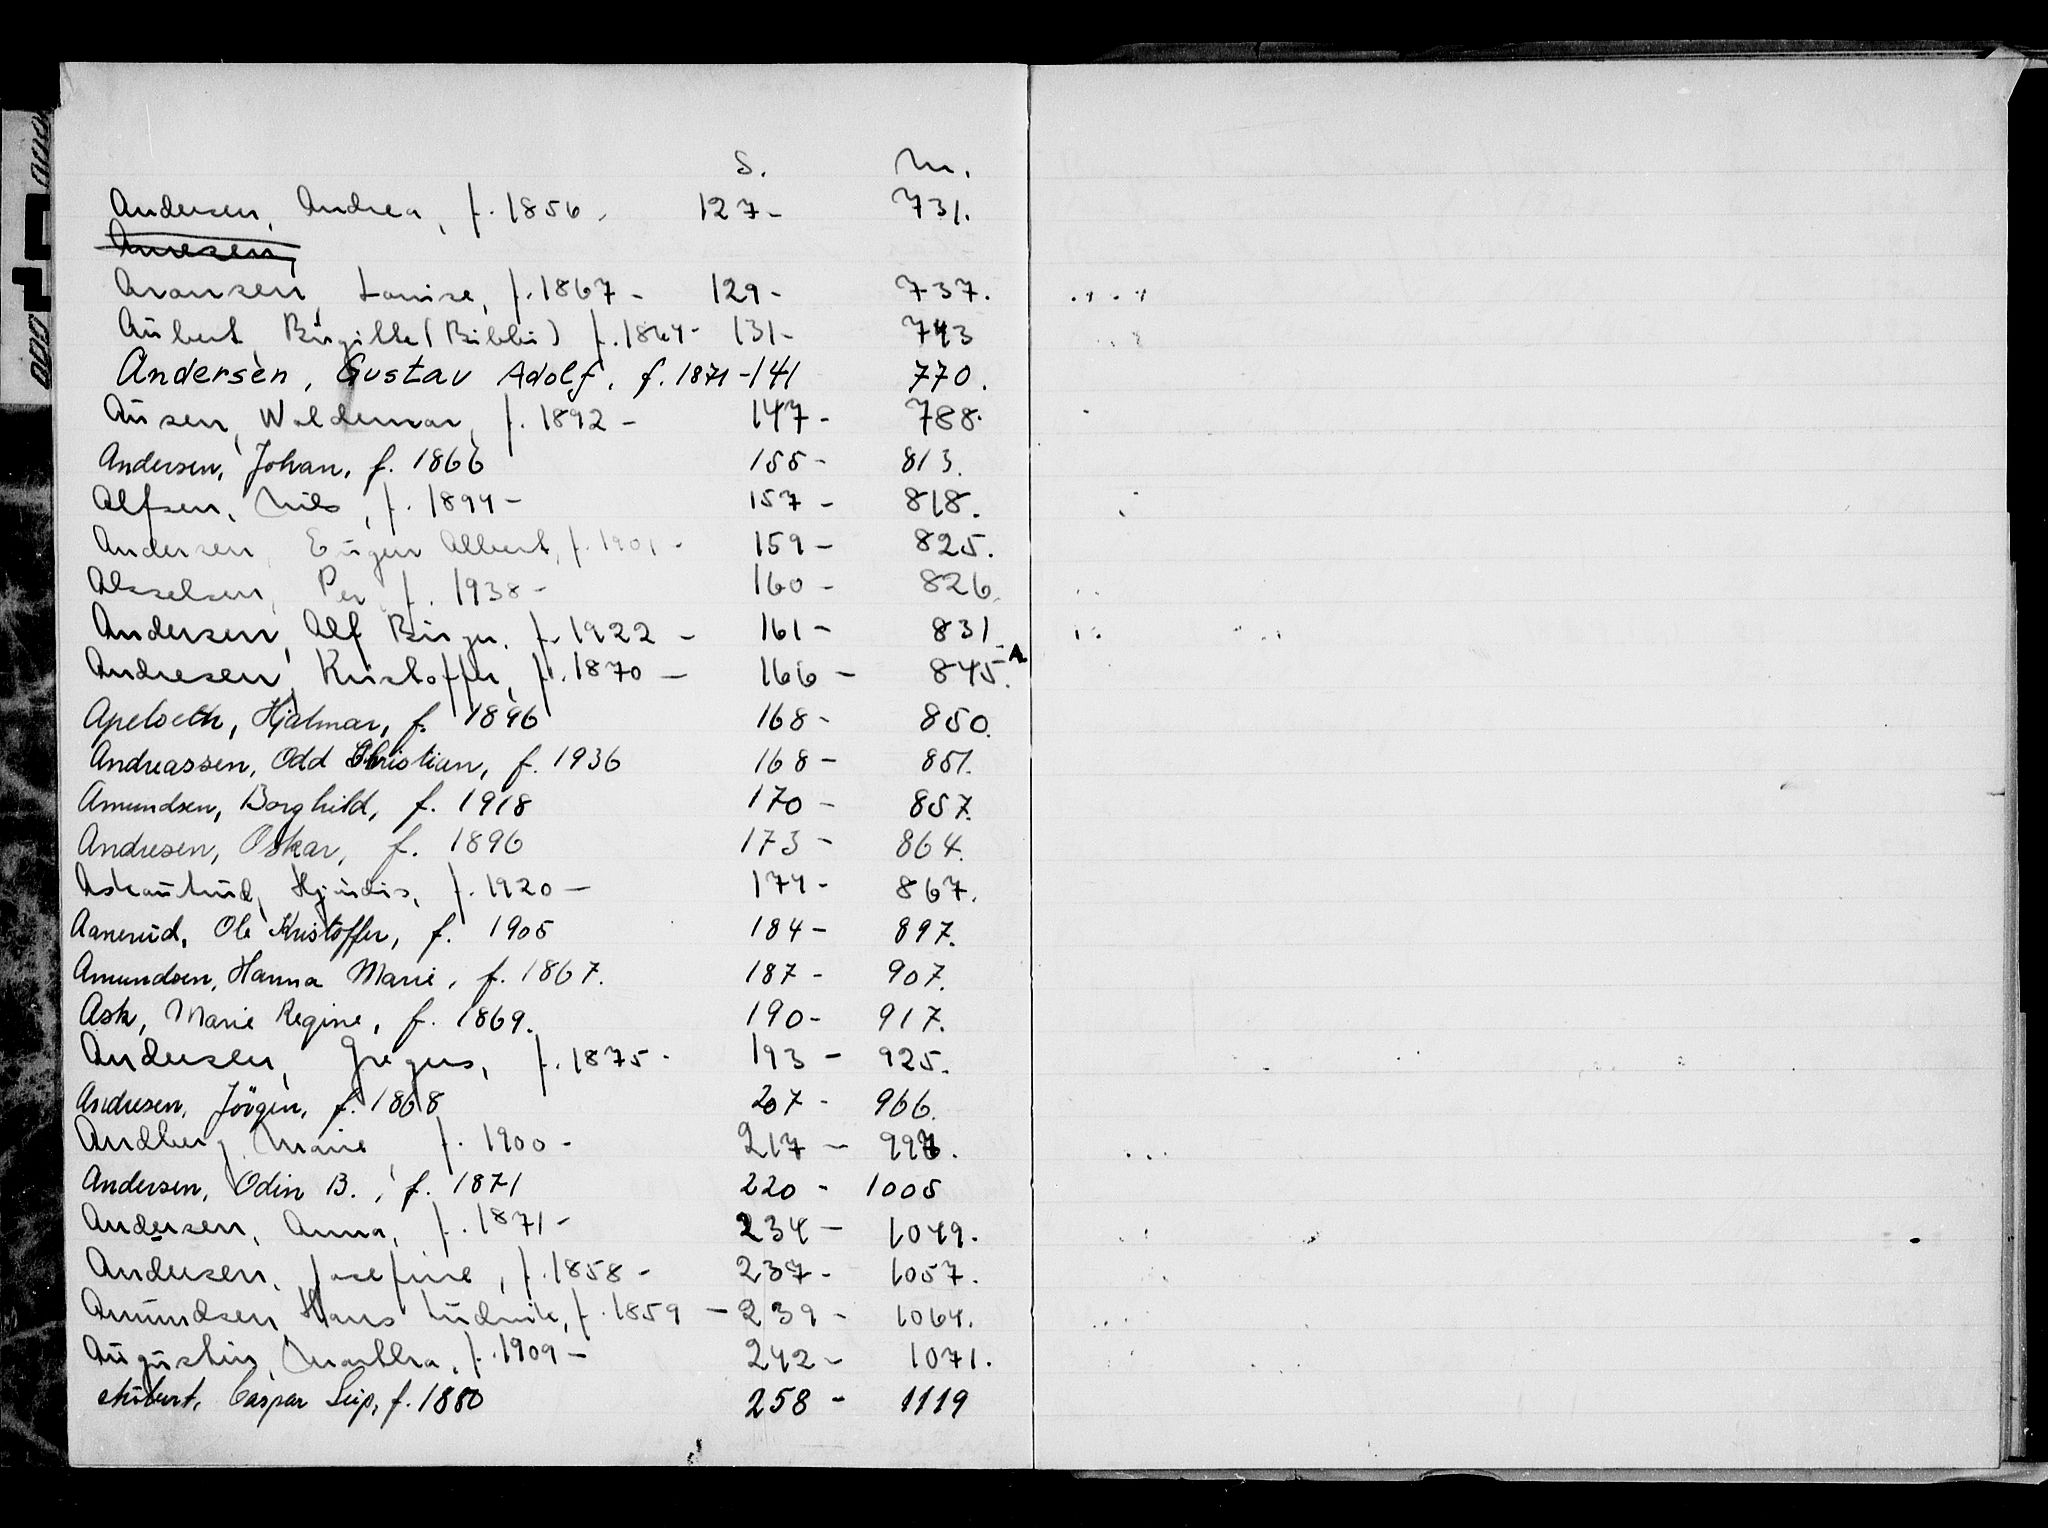 S. Nr.
Andersen, Andrea, f. 1856. 127- 731.
Aronsen, Louise, f. 1867 - 129- 737.
Aubert, Birgitte (Bibbi) f. 1864- 131- 743
Andersen, Gustav Adolf, f. 1871 - 141 770.
Ausen, Waldemar, f. 1892 - 147- 788.
Andersen, Johan, f. 1866 155- 813.
Alfsen, Nils, f. 1894 - 157 - 818.
Andersen, Eugen Albert, f. 1901 - 159 - 825.
Per, f. 1938 - 160 - 826.
Andersen, Alf Birger, f. 1922 - 161 - 831
Andresen, Kristoffer, f. 1870 - 166 - 845. A
Apeloeth, Hjalmar, f. 1896 168- 850.
Andreassen, Odd Christian, f. 1936 168 - 851.
Amundsen, Borghild, f. 1918 170 - 857.
Andresen, Oskar, f. 1896 173 - 864.
Askautrud, Hjørdis, f. 1920 - 174- 867.
Aanerud, Ole Kristoffer, f. 1905 184 - 897.
Amundsen, Hanna Marie, f. 1867. 187 - 907.
Ask, Marie Regine, f. 1869. 190- 917.
Andersen, Gregers, f. 1875 - 193 - 925.
Andresen, Jörgen, f. 1868 207 - 966.
Andberg, Marie f. 1900 - 217 -
Andersen, Odin B., f. 1871 220 - 1005
Andersen, Anna, f. 1871 - 234 - 1049.
Andersen, Josefine, f. 1858 - 237 - 1057.
Amundsen, Hans Ludvik, f. 1859 - 239 - 1064.
Augustin, Martha, f. 1909 - 242 - 1071.
Aubert, Caspar Leip, f. 1880 258 - 1119